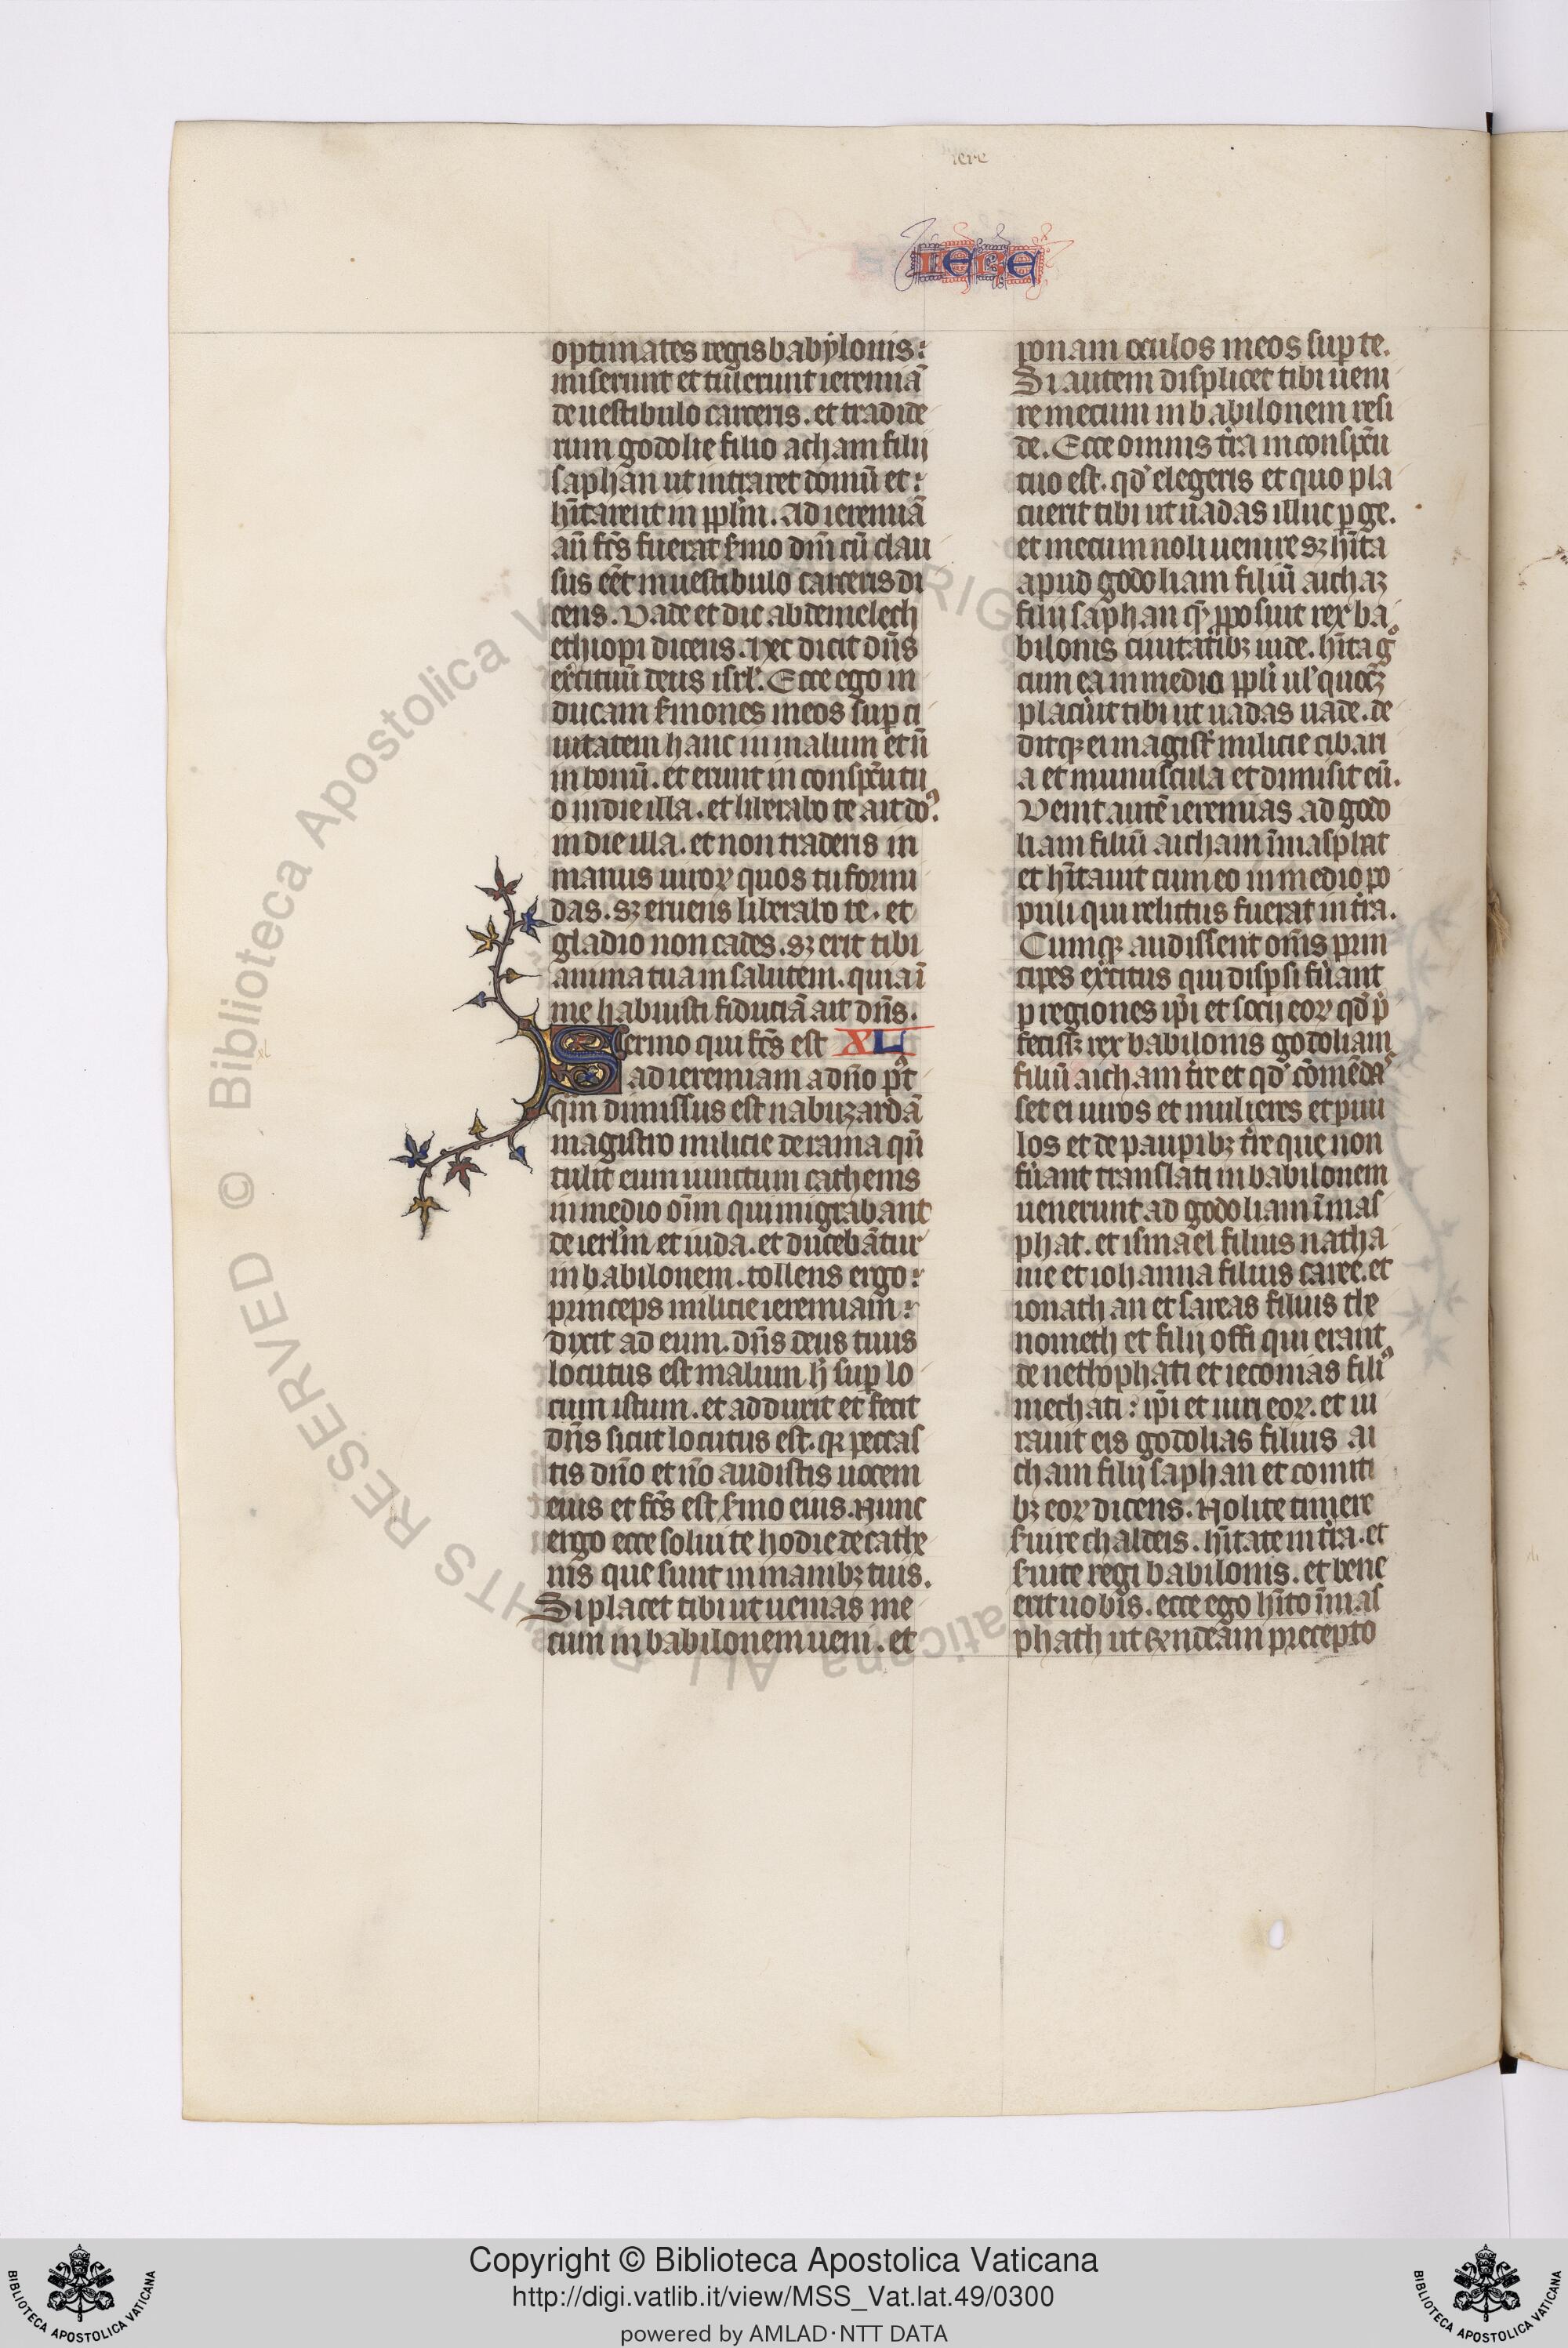 iere
IERE
optimates regis babẏlonis:
miserunt et tulerunt ieremiā
de uestibulo carceris. et tradide
runt godolie filio achamfilij
saphan ut intraret domū et:
hītarent in pplm̄. Ad ieremiā
aū fc̄s fuerat ẜmo dn̄i cū clau
sus eēt in uestibulo carceris di
cens. Vade et dic abdemelech
ethiopi dicens. Hec dicit dn̄s
exꝰcituū deus isrl̓. Ecce ego in
ducam ẜmones meos suꝑ ci
uitatem hanc in malum et ñ
in bonū. et erunt in conspc̄u tu
o in die illa. et liberabo te ait doꝰ.
in die illa. et non traderis in
manus uiroꝝ quos tu formi
das. sꝫ eruens liberabo te. et
gladio non cades. sꝫ erit tibi
anima tua in salutem. quia ī
me habuisti fiduciā ait dn̄s.
Sermo qui fc̄s est XL
ad ieremiam a dn̄o pꝰt
qm̄ dimissus est a nabuzardā
magistro milicie de rama qn̄
tulit eum uinctum cathenis
in medio oīm qui migrabant
de ierlm̄ et iuda. et ducebātur
in babilonem. tollens ergo:
princeps milicie ieremiam:
dixit ad eum. dn̄s deus tuus
locutus est malum h̓ suꝑ lo
cum istum. et adduxit et fecit
dn̄s sicut locutus est. qꝛ peccaſ
tis dn̄o et nō audistis uocem
eius et fc̄s est ẜmo eius. Nunc
ergo ecce solui te hodie de cathe
nis que sunt in manibꝫ tuis.
Si placet tibi ut uenias me
cum in babilonem ueni. et
ponam oculos meos suꝑ te.
Si autem displicet tibi ueni
re mecum in babilonem resi
de. Ecce omnis tr̓a in conspc̄u
tuo est. qd̓ elegeris et quo pla
cuerit tibi ut uadas illuc ꝑge.
et mecum noli uenire sꝫ hīta
apud godoliam filiū aichaꝫ
filij saphan qꝫ ꝓposuit rex ba
bilonis ciuitatibꝫ iude. hīta gͦ
cum ea in medio ppli ul̓ quocūqꝫ
placuit tibi ut uadas uade. de
ditqꝫ ei magistꝰ milicie cibari
a et munuscula et dimisit eū.
Venit autē ieremias ad godo
liam filiū aicham ī masphat
et hītauit cum eo in medio po
puli qui relictus fuerat in tr̓a.
Cumqꝫ audissent om̄s prin
cipes exꝰcitus qui disꝑsi fuꝰant
ꝑ regiones ip̄i et socij eoꝝ qd̓ p̄
fecissꝫ rex babilonis godoliam
filiū aicham tr̓e et qd̓ cōmēdaſ
set ei uiros et mulieres et puu
los et de pauꝑibꝫ tr̓e que non
fuꝰant translati in babilonem
uenerunt ad godoliam ī maſ
phat. et ismael filius natha
nie et iohanna filius caree. et
ionathan et sareas filius the
nometh et filij offi qui erant
de nethophati et ieconias filiꝰ
mechati: ip̄i et uiri eoꝝ. et iu
rauit eis godolias filius ai
cham filij saphan et comiti
bꝫ eoꝝ dicens. Nolite timere
ẜuire chaldeis. hītate in tr̓a. et
ẜuite regi babilonis. et bene
erit uobis. ecce ego hīto ī maſ
phath ut rn̄deam precepto
Copyright © Biblioteca Apostolica Vaticana
http://digi.vatlib.it/view/MSS_Vat.lat.49/0300
powered by AMLAD·NTT DATA
BIBLIOTECA APOSTOLICA VATICANA
BIBLIOTECA APOSTOLICA VATICANA